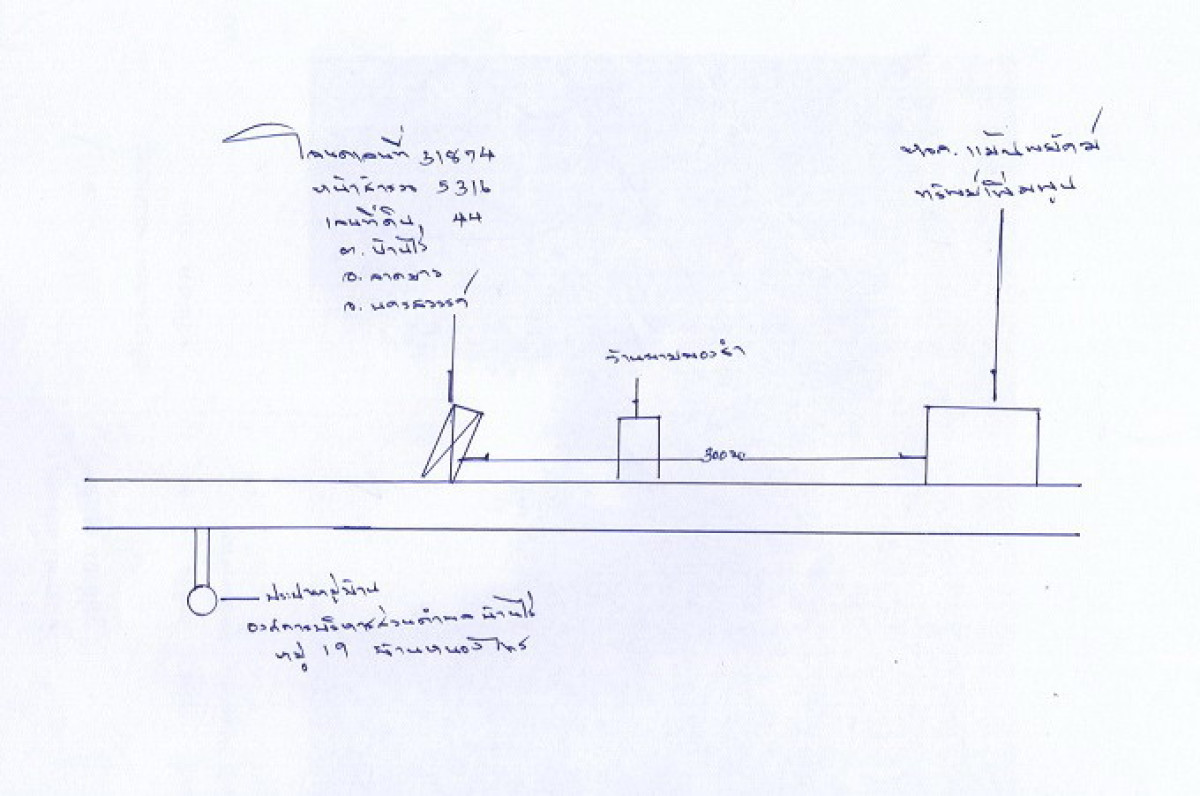 โฉนดเลขที่ 31874
หน้าสำรวจ 5316
เลขที่ดิน 44
ต. บ้านไร่
อ. ลาดยาว
จ. นครสวรรค์
หจก. แม้นพยัคฆ์
ทรัพย์เพิ่มพูน
300 ม
ประปาหมู่บ้าน
องค์การบริหารส่วนตำบลบ้านไร่
หมู่ 19 บ้านหนองไทร